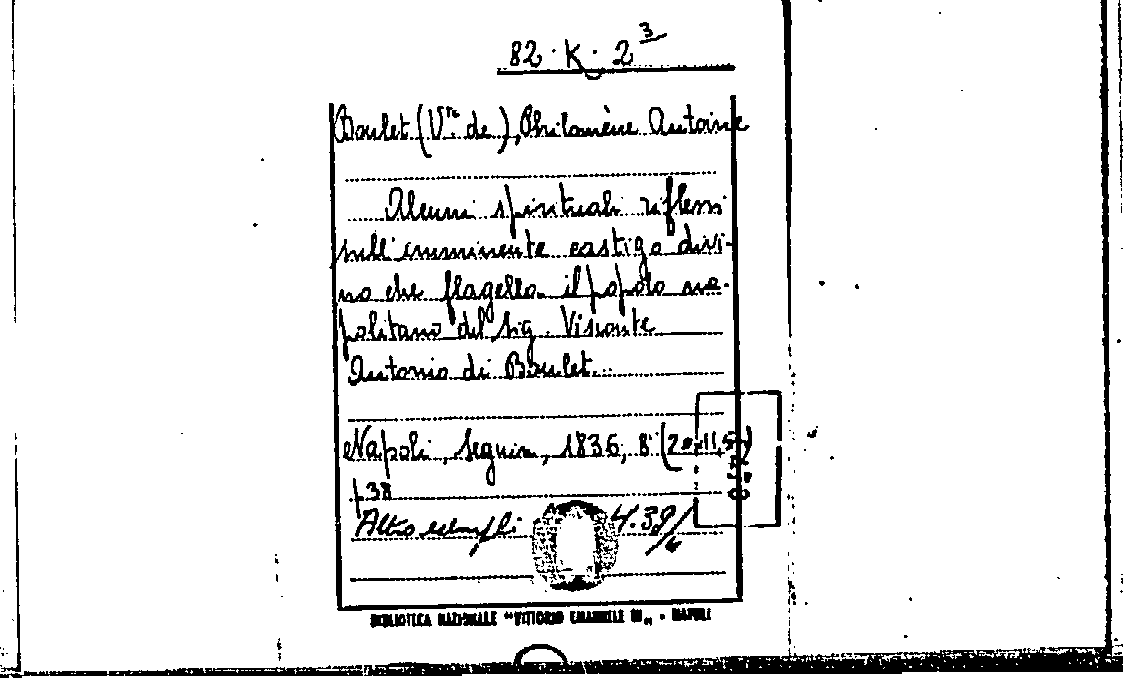 82 · K · 2 3
Boulet (V.te de), Philomène Antoine
Alcuni spirituali riflessi
sull'imminente castigo divi-
no che flagella il popolo na-
politano del Sig. Visconte
Antonio di Boulet.
Napoli, Seguin, 1836, 8°
p. 38
Altro
BIBLIOTECA NAZIONALE "VITTORIO EMANUELE III" - NAPOLI